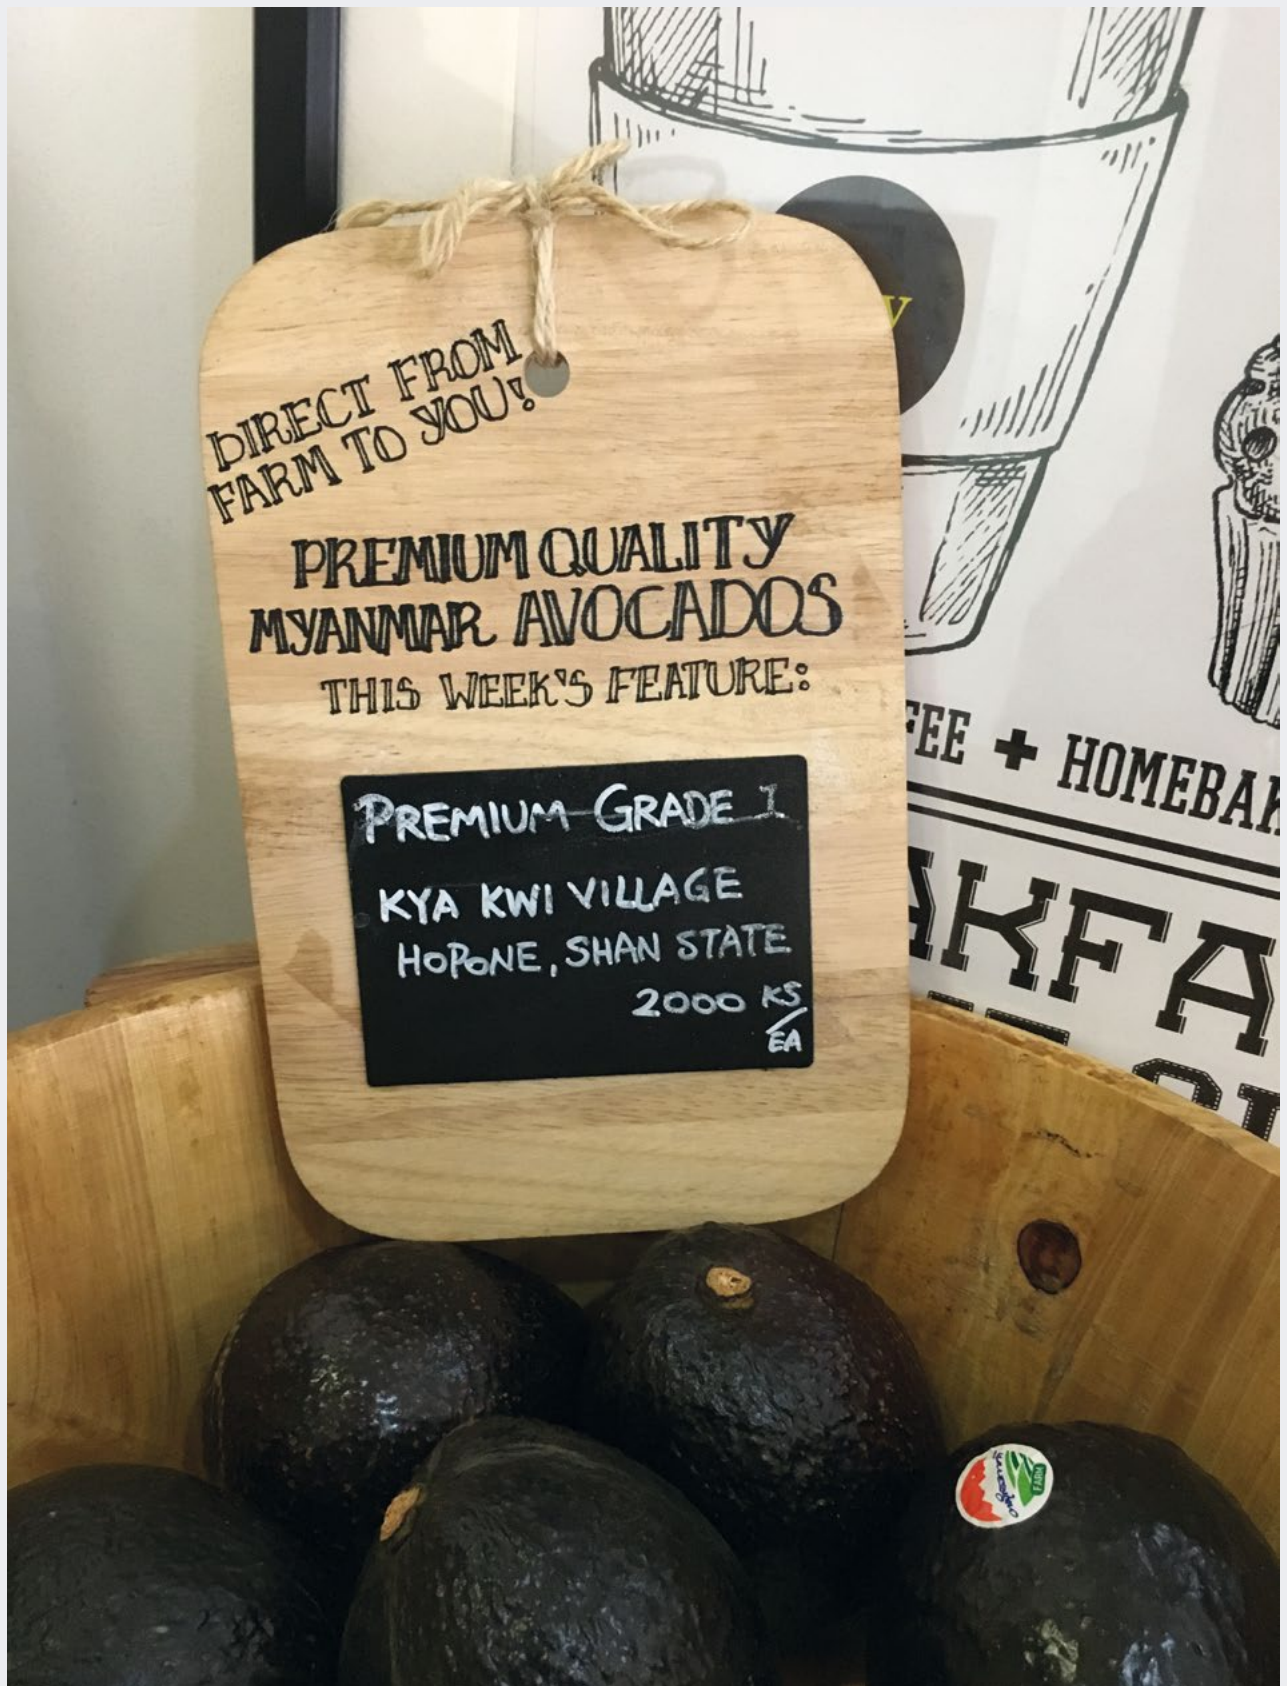 DIRECT FROM
FARM TO YOU!
PREMIUM QUALITY
MYANMAR AVOCADOS
THIS WEEK'S FEATURE:
PREMIUM GRADE 1
KYA KWI VILLAGE
HOPONE, SHAN STATE
2000 KS/EA
y
FEE + HOMEBAK
AKFA
FARM